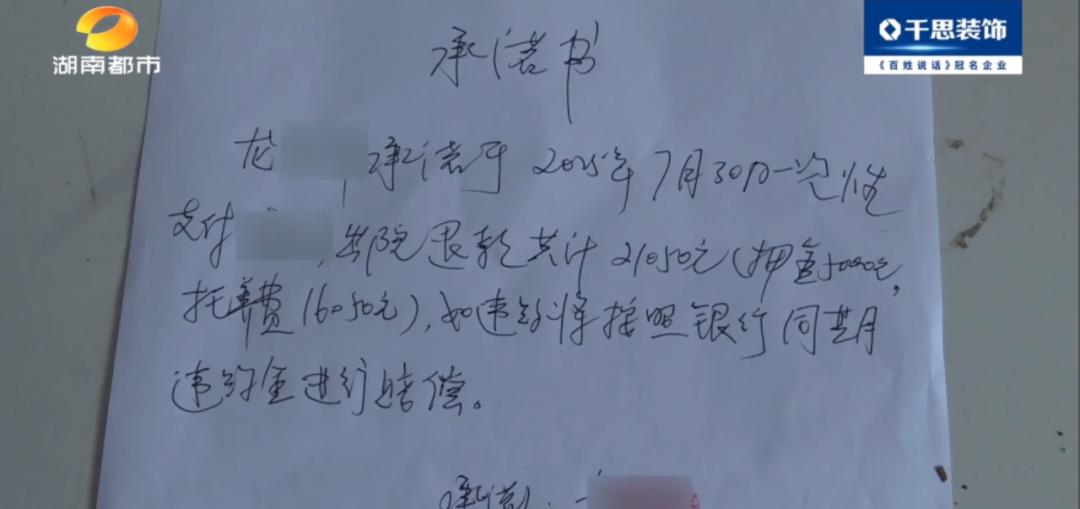 湖南都市
千思装饰
《百姓说话》冠名企业
承诺书
龙 承诺于2025年7月30日一次性
支付 ,出院退款共计21050元(押金5000元,
托养费16050元),如违约将按照银行同期
违约金进行赔偿。
承诺人: